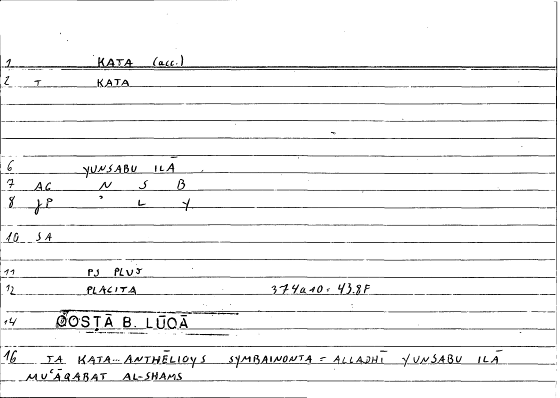 1 KATA (acc.)
2 T KATA
6 YUNSABU ILĀ
7 AC N S B
8 JP ʾ L Y
10 SA
11 PS PLUT
12 PLACITA 374a10 = 43.8F
14 QOSṬĀ B. LŪQĀ
16 TA KATA... ANTHĒLIOYS SYMBAINONTA = ALLADHĪ YUNSABU ILĀ
MUʿĀQABAT AL-SHAMS